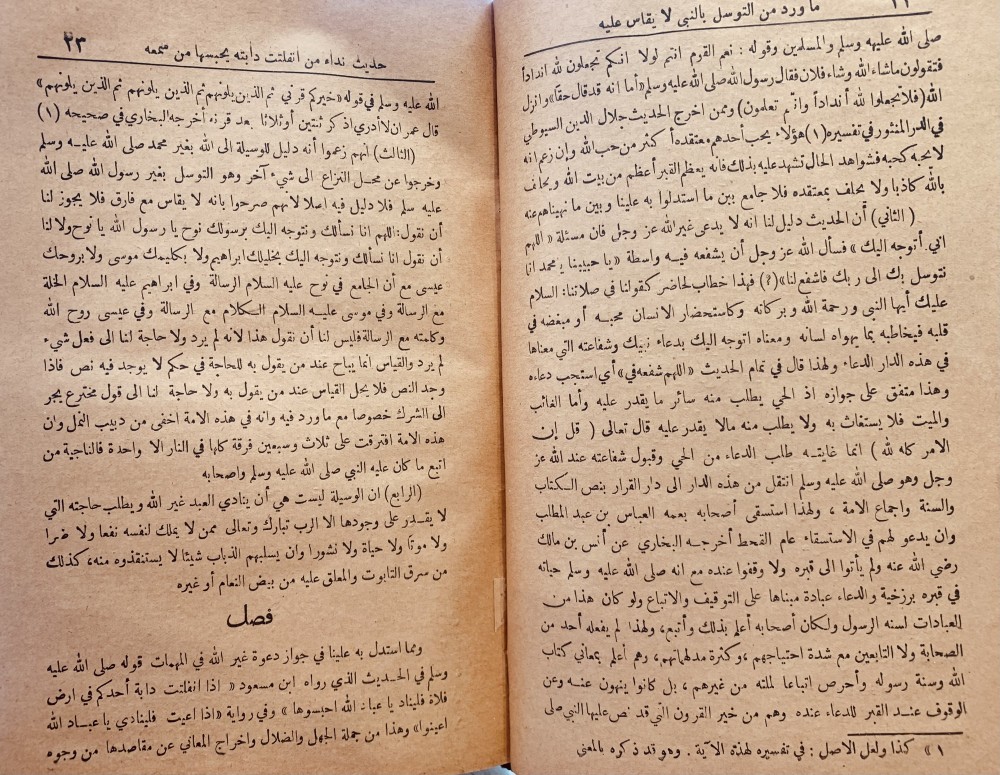 ٢٢ ما ورد من التوسل بالنبي لا يقاس عليه
صلى الله عليه وسلم والمسلمين وقوله : نعم القوم انتم لولا انكم تجعلون لله انداداً
فتقولون ماشاء الله وشاء فلان فقال رسول الله صلى الله عليه وسلم «أما انه قد قال حقا» وانزل
الله (فلا تجعلوا لله أنداداً وانتم تعلمون) وممن اخرج الحديث جلال الدين السيوطي
في الدر المنثور في تفسيره (١) هؤلاء يحب أحدهم معتقده أكثر من حب الله وإن زعم انه
لا يحبه كحبه فشواهد الحال تشهد عليه بذلك فانه يعظم القبر أعظم من بيت الله ويحلف
بالله كاذبا ولا يحلف بمعتقده فلا جامع بين ما استدلوا به علينا وبين ما نهيناهم عنه
(الثاني) أن الحديث دليل لنا انه لا يدعى غير الله عز وجل فان مسئلة « اللهم
اني أتوجه اليك » فسأل الله عز وجل أن يشفعه فيه واسطة « يا حبيبنا يا محمد انا
نتوسل بك الى ربك فاشفع لنا» (؟) فهذا خطاب لحاضر كقولنا في صلاتنا: السلام
عليك أيها النبي ورحمة الله وبركاته وكاستحضار الانسان محبه أو مبغضه في
قلبه فيخاطبه بما يهواه لسانه ومعناه اتوجه اليك بدعاء نبيك وشفاعته التي معناها
في هذه الدار الدعاء ولهذا قال في تمام الحديث « اللهم شفعه في» أي استجب دعاءه
وهذا متفق على جوازه اذ الحي يطلب منه سائر ما يقدر عليه وأما الغائب
والميت فلا يستغاث به ولا يطلب منه مالا يقدر عليه قال تعالى ( قل إن
الامر كله لله ) انما غايته طلب الدعاء من الحي وقبول شفاعته عند الله عز
وجل وهو صلى الله عليه وسلم انتقل من هذه الدار الى دار القرار بنص الكتاب
والسنة واجماع الامة ، ولهذا استسقى أصحابه بعمه العباس بن عبد المطلب
وان يدعو لهم في الاستسقاء عام القحط أخرجه البخاري عن أنس بن مالك
رضي الله عنه ولم يأتوا الى قبره ولا وقفوا عنده مع انه صلى الله عليه وسلم حياته
في قبره برزخية والدعاء عبادة مبناها على التوقيف والاتباع ولو كان هذا من
العبادات لسنه الرسول ولكان أصحابه أعلم بذلك وأتبع، ولهذا لم يفعله أحد من
الصحابة ولا التابعين مع شدة احتياجهم ،وكثرة مدلهماتهم، وهم أعلم بمعاني كتاب
الله وسنة رسوله وأحرص اتباعا لملته من غيرهم ، بل كانوا ينهون عنه وعن
الوقوف عند القبر للدعاء عنده وهم من خير القرون التي قد نص عليها النبي صلى
١ » كذا ولعل الاصل : في تفسيره لهذه الآية . وهو قد ذكره بالمعنى
حديث نداء من انفلتت دابته يحبسها من سمعه ٢٣
الله عليه وسلم في قوله « خيركم قرني ثم الذين يلونهم ثم الذين يلونهم ثم الذين يلونهم»
قال عمران لا أدري اذكر ثنتين أو ثلاثا بعد قرنه أخرجه البخاري في صحيحه (١)
(الثالث) انهم زعموا أنه دليل للوسيلة الى الله بغير محمد صلى الله عليه وسلم
وخرجوا عن محل النزاع الى شيء آخر وهو التوسل بغير رسول الله صلى الله
عليه سلم فلا دليل فيه اصلا لانهم صرحوا بانه لا يقاس مع فارق فلا يجوز لنا
أن نقول: اللهم انا نسألك ونتوجه اليك برسولك نوح يا رسول الله يا نوح ولا لنا
أن نقول انا نسألك ونتوجه اليك بخليلك ابراهيم ولا بكليمك موسى ولا بروحك
عيسى مع أن الجامع في نوح عليه السلام الرسالة وفي ابراهيم عليه السلام الخلة
مع الرسالة وفي موسى عليه السلام الكلام مع الرسالة وفي عيسى روح الله
وكلمته مع الرسالة فليس لنا أن نقول هذا لانه لم يرد ولا حاجة لنا الى فعل شيء
لم يرد والقياس انما يباح عند من يقول به للحاجة في حكم لا يوجد فيه نص فاذا
وجد النص فلا يحل القياس عند من يقول به ولا حاجة لنا الى قول مخترع يجر
الى الشرك خصوصا مع ما ورد فيه وانه في هذه الامة اخفى من دبيب النمل وان
هذه الامة افترقت على ثلاث وسبعين فرقة كلها في النار الا واحدة فالناجية من
اتبع ما كان عليه النبي صلى الله عليه وسلم واصحابه
(الرابع) ان الوسيلة ليست هي أن ينادي العبد غير الله ويطلب حاجته التي
لا يقدر على وجودها الا الرب تبارك وتعالى ممن لا يملك لنفسه نفعا ولا ضرا
ولا موتا ولا حياة ولا نشورا وان يسلبهم الذباب شيئا لا يستنقذوه منه، كذلك
من سرق التابوت والمعلق عليه من بيض النعام أو غيره
فصل
ومما استدل به علينا في جواز دعوة غير الله في المهمات قوله صلى الله عليه
وسلم في الحديث الذي رواه ابن مسعود « اذا انفلتت دابة أحدكم في ارض
فلاة فليناد يا عباد الله احبسوها » وفي رواية « اذا اعيت فلينادي يا عباد الله
اعينوا» وهذا من جملة الجهل والضلال واخراج المعاني عن مقاصدها من وجوه